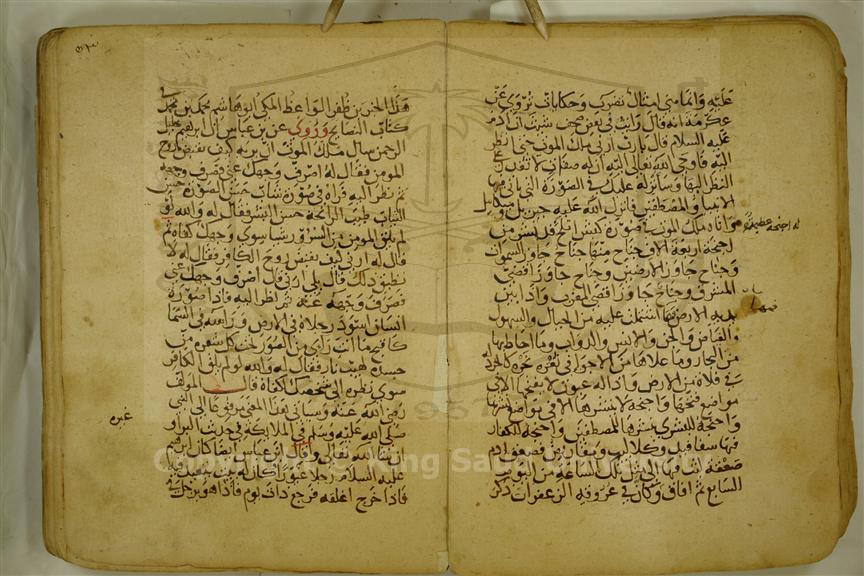 عليه وانما هي امثال تضرب وحكايات تروى عن
عكرمة انه قال رايت في بعض صحف شيث ان ادم
عليه السلام قال يارب ارني ملك الموت حتى انظر
اليه فاوحى الله تعالى اليه ان له صفات لا تقدر على
النظر اليها وسانزله عليك في الصورة التي ياتي فيها
الانبيا والمصطفين فانزل الله عليه جبريل وميكايل
واتاه ملك الموت في صورة كبش املح قد نشر من
له اجنحة عظيمة
اجنحته اربعة الاف جناح منها جناح جاوز السموات
وجناح جاوز الارضين وجناح جاوز اقصى
المشرق وجناح جاوز اقصى المغرب واذا بين
يديه الارض بما اشتملت عليه من الجبال والسهول
والغياض والجن والانس والدواب وما احاط بها
من البحار وما علاها من الاجواء في ثغرة نحره كالخردلة
في فلاة من الارض واذا له عيون لا يفتحها الا في
مواضع فتحها واجنحة لا ينشرها الا في مواضع نشرها
واجنحة للبشرى ينشرها للمصطفين واجنحة للكفار
فيها سفافيد وكلاليب ومقاريض فصعق ادم
صعقة لبث فيها الى مثل تلك الساعة من اليوم
السابع ثم افاق وكان في عروقه الزعفران ذكر
هذا الخبر بن ظفر الواعظ المكي ابو هاشم محمد بن محمد
كتاب النصايح وروي عن بن عباس ان ابرهيم خليل
الرحمن سال ملك الموت ان يريه كيف يقبض روح
المومن فقال له اصرف وجهك عني فصرف وجهه
ثم نظر اليه فراه في صورة شاب حسن الصورة حسن
الثياب طيب الرائحة حسن البشر فقال له والله لو
لم يلق المومن من السرور شيا سوى وجهك كفاه ثم
قال له ارني كيف تقبض روح الكافر فقال له لا
تطيق ذلك قال بلى ارني قال اصرف وجهك عني
فصرف وجهه عنه ثم نظر اليه فاذا صورة
انسان اسود رجلاه في الارض وراسه في السما
كاقبح ما انت راي من الصور تحت كل شعرة من
جسده لهيب نار فقال له والله لو لم يلق الكافر
سوى نظره الى شخصك لكفاه قال المولف
رضي الله عنه وسياتي هذا المعنى مرفوعا الى النبي
صلى الله عليه وسلم في الملايكة في حديث البراء
ان شا الله تعالى وقال ابن عباس ايضا كان ابرهيم
عليه السلام رجلا غيورا وكان له بيت يتعبد فيه
غيره
فاذا خرج اغلقه فرجع ذات يوم فاذا هو برجل في
Copyright © King Saud University
1957